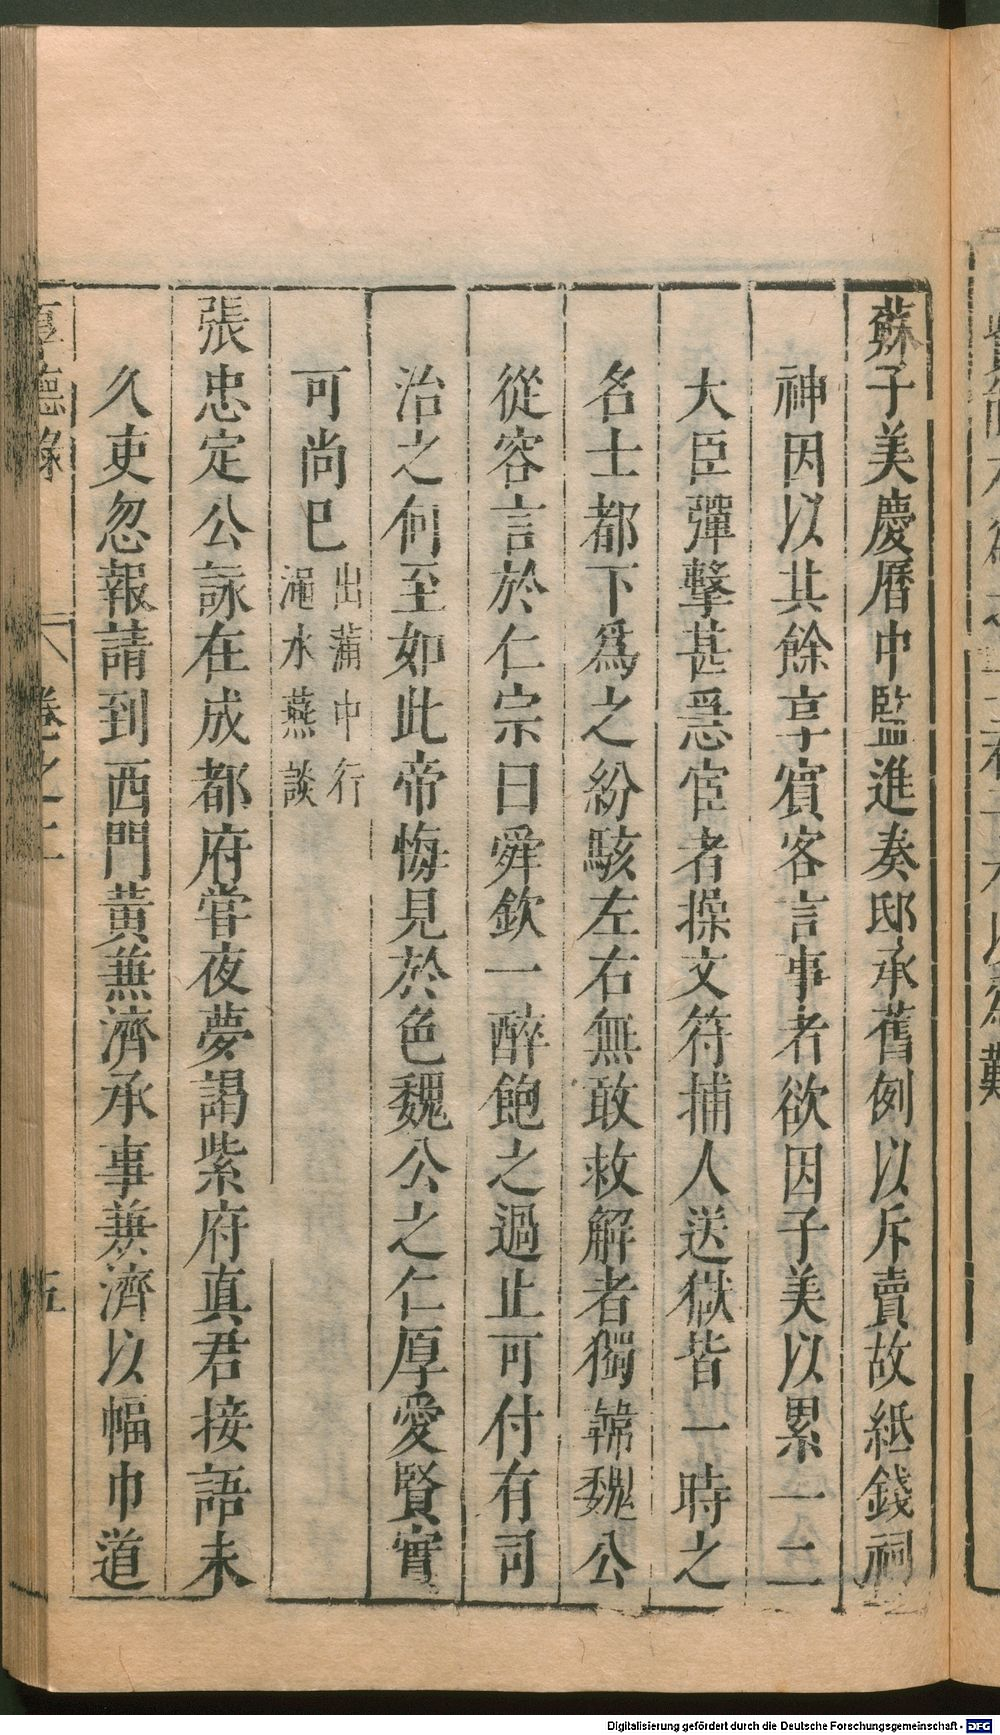 蘇子美慶曆中監進奏邸承舊例以斥賣故紙錢祠
神因以其餘享賓客言事者欲因子美以累一二
大臣彈擊甚急宦者操文符捕人送獄皆一時之
名士都下為之紛駭左右無敢救解者獨韓魏公
從容言於仁宗曰舜欽一醉飽之過止可付有司
治之何至如此帝悔見於色魏公之仁厚愛賢實
可尚巳
出蒲中行
澠水燕談
張忠定公詠在成都府嘗夜夢謁紫府真君接語未
久吏忽報請到西門黃兼濟承事兼濟以幅巾道
厚德錄
卷之二
五
Digitalisierung gefördert durch die Deutsche Forschungsgemeinschaft - DFG